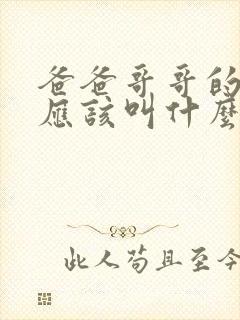 爸爸哥哥的
應該叫什麼
此人苟且至今